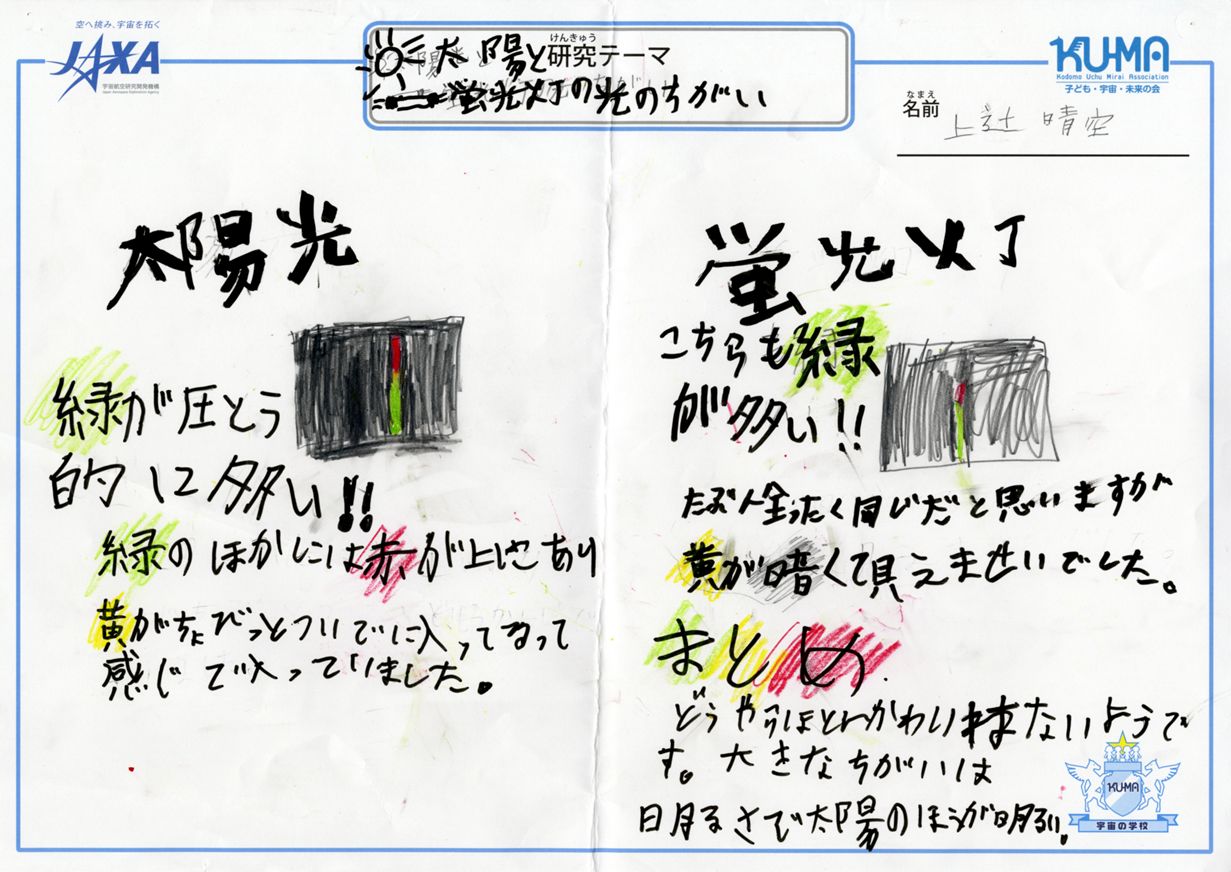 空へ挑み、宇宙を拓く
JAXA
宇宙航空研究開発機構
Japan Aerospace Exploration Agency
けんきゅう
研究テーマ
太陽と
蛍光灯の光のちがい
KU-MA
Kodomo Uchu Mirai Association
子ども・宇宙・未来の会
なまえ
名前
上辻 晴空
太陽光
緑が圧とう
的に多い!!
緑のほかには赤が上にあり
黄がちょびっとついでに入ってるって
感じで入っていました。
蛍光灯
こちらも緑
が多い!!
たぶん全ったく同じだと思いますが
黄が暗くて見えませんでした。
まとめ
どうやらほとんどかわりはないようで
す。大きなちがいは
明るさで太陽のほうが明るい。
KU-MA
宇宙の学校